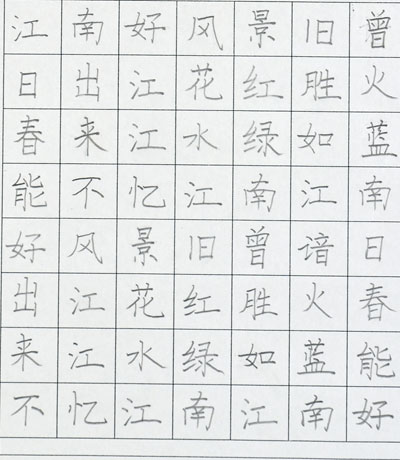 江南好风景旧曾
日出江花红胜火
春来江水绿如蓝
能不忆江南江南
好风景旧曾谙日
出江花红胜火春
来江水绿如蓝能
不忆江南江南好